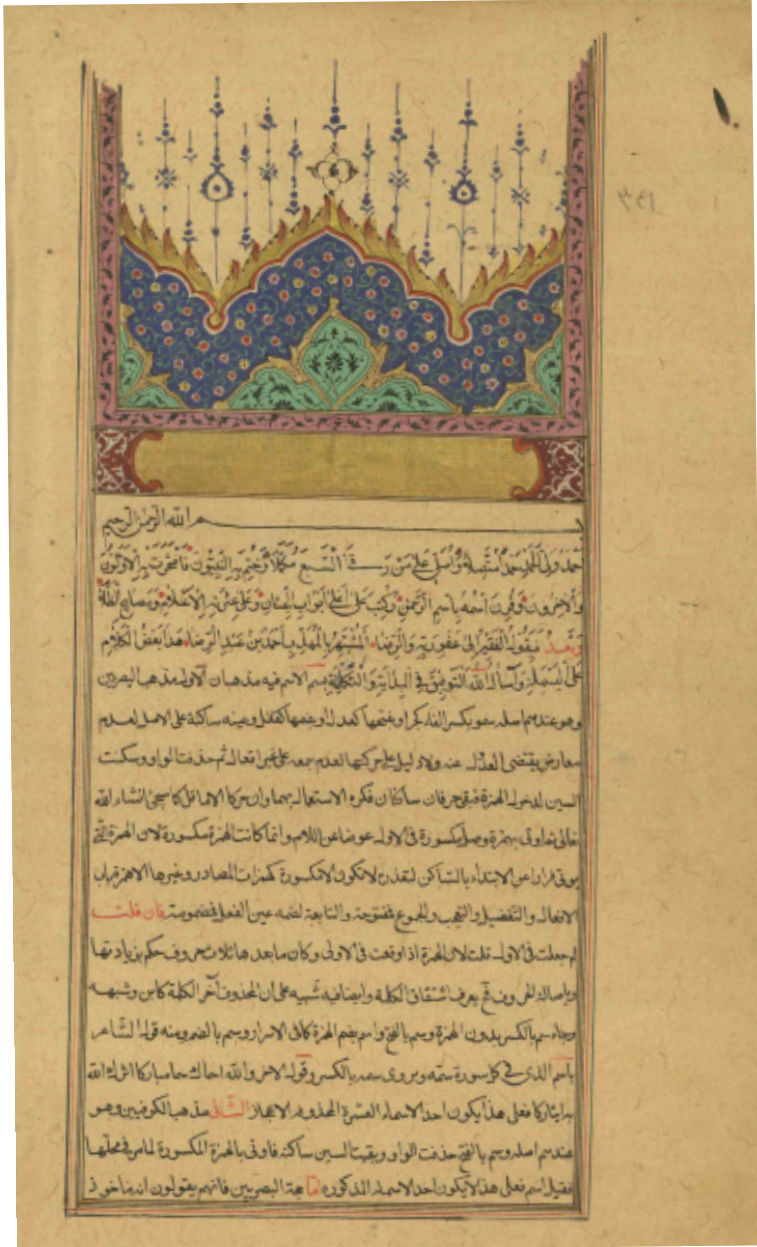 بسم الله الرحمن الرحيم
أحمد ولي الحمد حمدا متصلا وأسلم على من مكملا وختم به النبيون فافتخرت به الأولون
والآخرون وقرن اسمه باسم الرحمن وكتب على أعلى أبواب الجنان وعلى عترته الإسلام ومصابيح الظلام
وبعد فيقول الفقير إلى عفو ربه والرضاء المشتهر بالمهذب أحمد بن عبد الرضا هذا بعض الكلام
على البسملة وأسأل الله التوفيق في البداية والتكملة بسم الاسم فيه مذهبان الأول مذهب البصريين
وهو عندهم اصله سمو بكسر الفاء كبر او فتحها كعدل او ضمها كقفل وعينه ساكنة على الاصل لعدم
معارض يقتضى العدول عنه ولا دليل على حركتها لعدم جمعه على غير افعال ثم حذفت الواو وسكنت
السين لدخول الهمزة فبقى حرفان ساكنان فكره الاستعمال بهما وان حركا كما سيجئ انشاء الله
تعالى فاوتى بهمزة وصل مكسورة في الاول عوضا عن اللام وانما كانت الهمزة مكسورة لان الهمزة التي
يوتى فرارا عن الابتداء بالساكن لتعذره لا تكون الا مكسورة كهمزات المصادر وغيرها الا همزة باب
الافعال والتفضيل والتعجب والجموع فمفتوحة والتابعة لضمه عين الفعل فمضمومة فان قلت
لم جعلت في الاول قلت لان الهمزة اذا وقعت في الاولى وكان ما بعدها ثلاث حروف حكم بزيادتها
وباصالة الحروف حتى يعرف اشتقاق الكلمة وايضا فيه شبيه على ان المحذوف آخر الكلمة كابن وشبهه
وجاء سم بالكسر بدون الهمزة وسم بالفتح واسم بضم الهمزة كما في الاسرار وسم بالضم ومنه قول الشاعر
باسم الذى في كل سورة سمه ويروى سمه بالكسر وقول الاخر والله اسماك سما مباركا اثرك الله
به ايثاركا فعلى هذا يكون احد الاسماء العشرة المحذوفة الاعجاز الثاني مذهب الكوفيين وهو
عندهم اصله وسم بالفتح حذفت الواو وبقيت السين ساكنة فاوتى بالهمزة المكسورة لما مر في محلها
فقيل اسم فعلى هذا لا يكون احد الاسماء المذكورة اما حجة البصريين فانهم يقولون انه ماخوذ